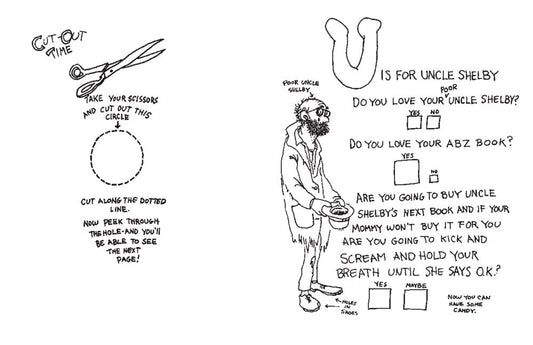 CUT-OUT
TIME
TAKE YOUR SCISSORS
AND CUT OUT THIS
CIRCLE
CUT ALONG THE DOTTED
LINE.
NOW PEEK THROUGH
THE HOLE-AND YOU'LL
BE ABLE TO SEE
THE NEXT
PAGE!
U IS FOR UNCLE SHELBY
POOR UNCLE
SHELBY
POOR
DO YOU LOVE YOUR UNCLE SHELBY?
YES NO
DO YOU LOVE YOUR ABZ BOOK?
YES
NO
ARE YOU GOING TO BUY UNCLE
SHELBY'S NEXT BOOK AND IF YOUR
MOMMY WON'T BUY IT FOR YOU
ARE YOU GOING TO KICK AND
SCREAM AND HOLD YOUR
BREATH UNTIL SHE SAYS O.K.?
YES MAYBE
HOLES
IN
SHOES
NOW YOU CAN
HAVE SOME
CANDY.